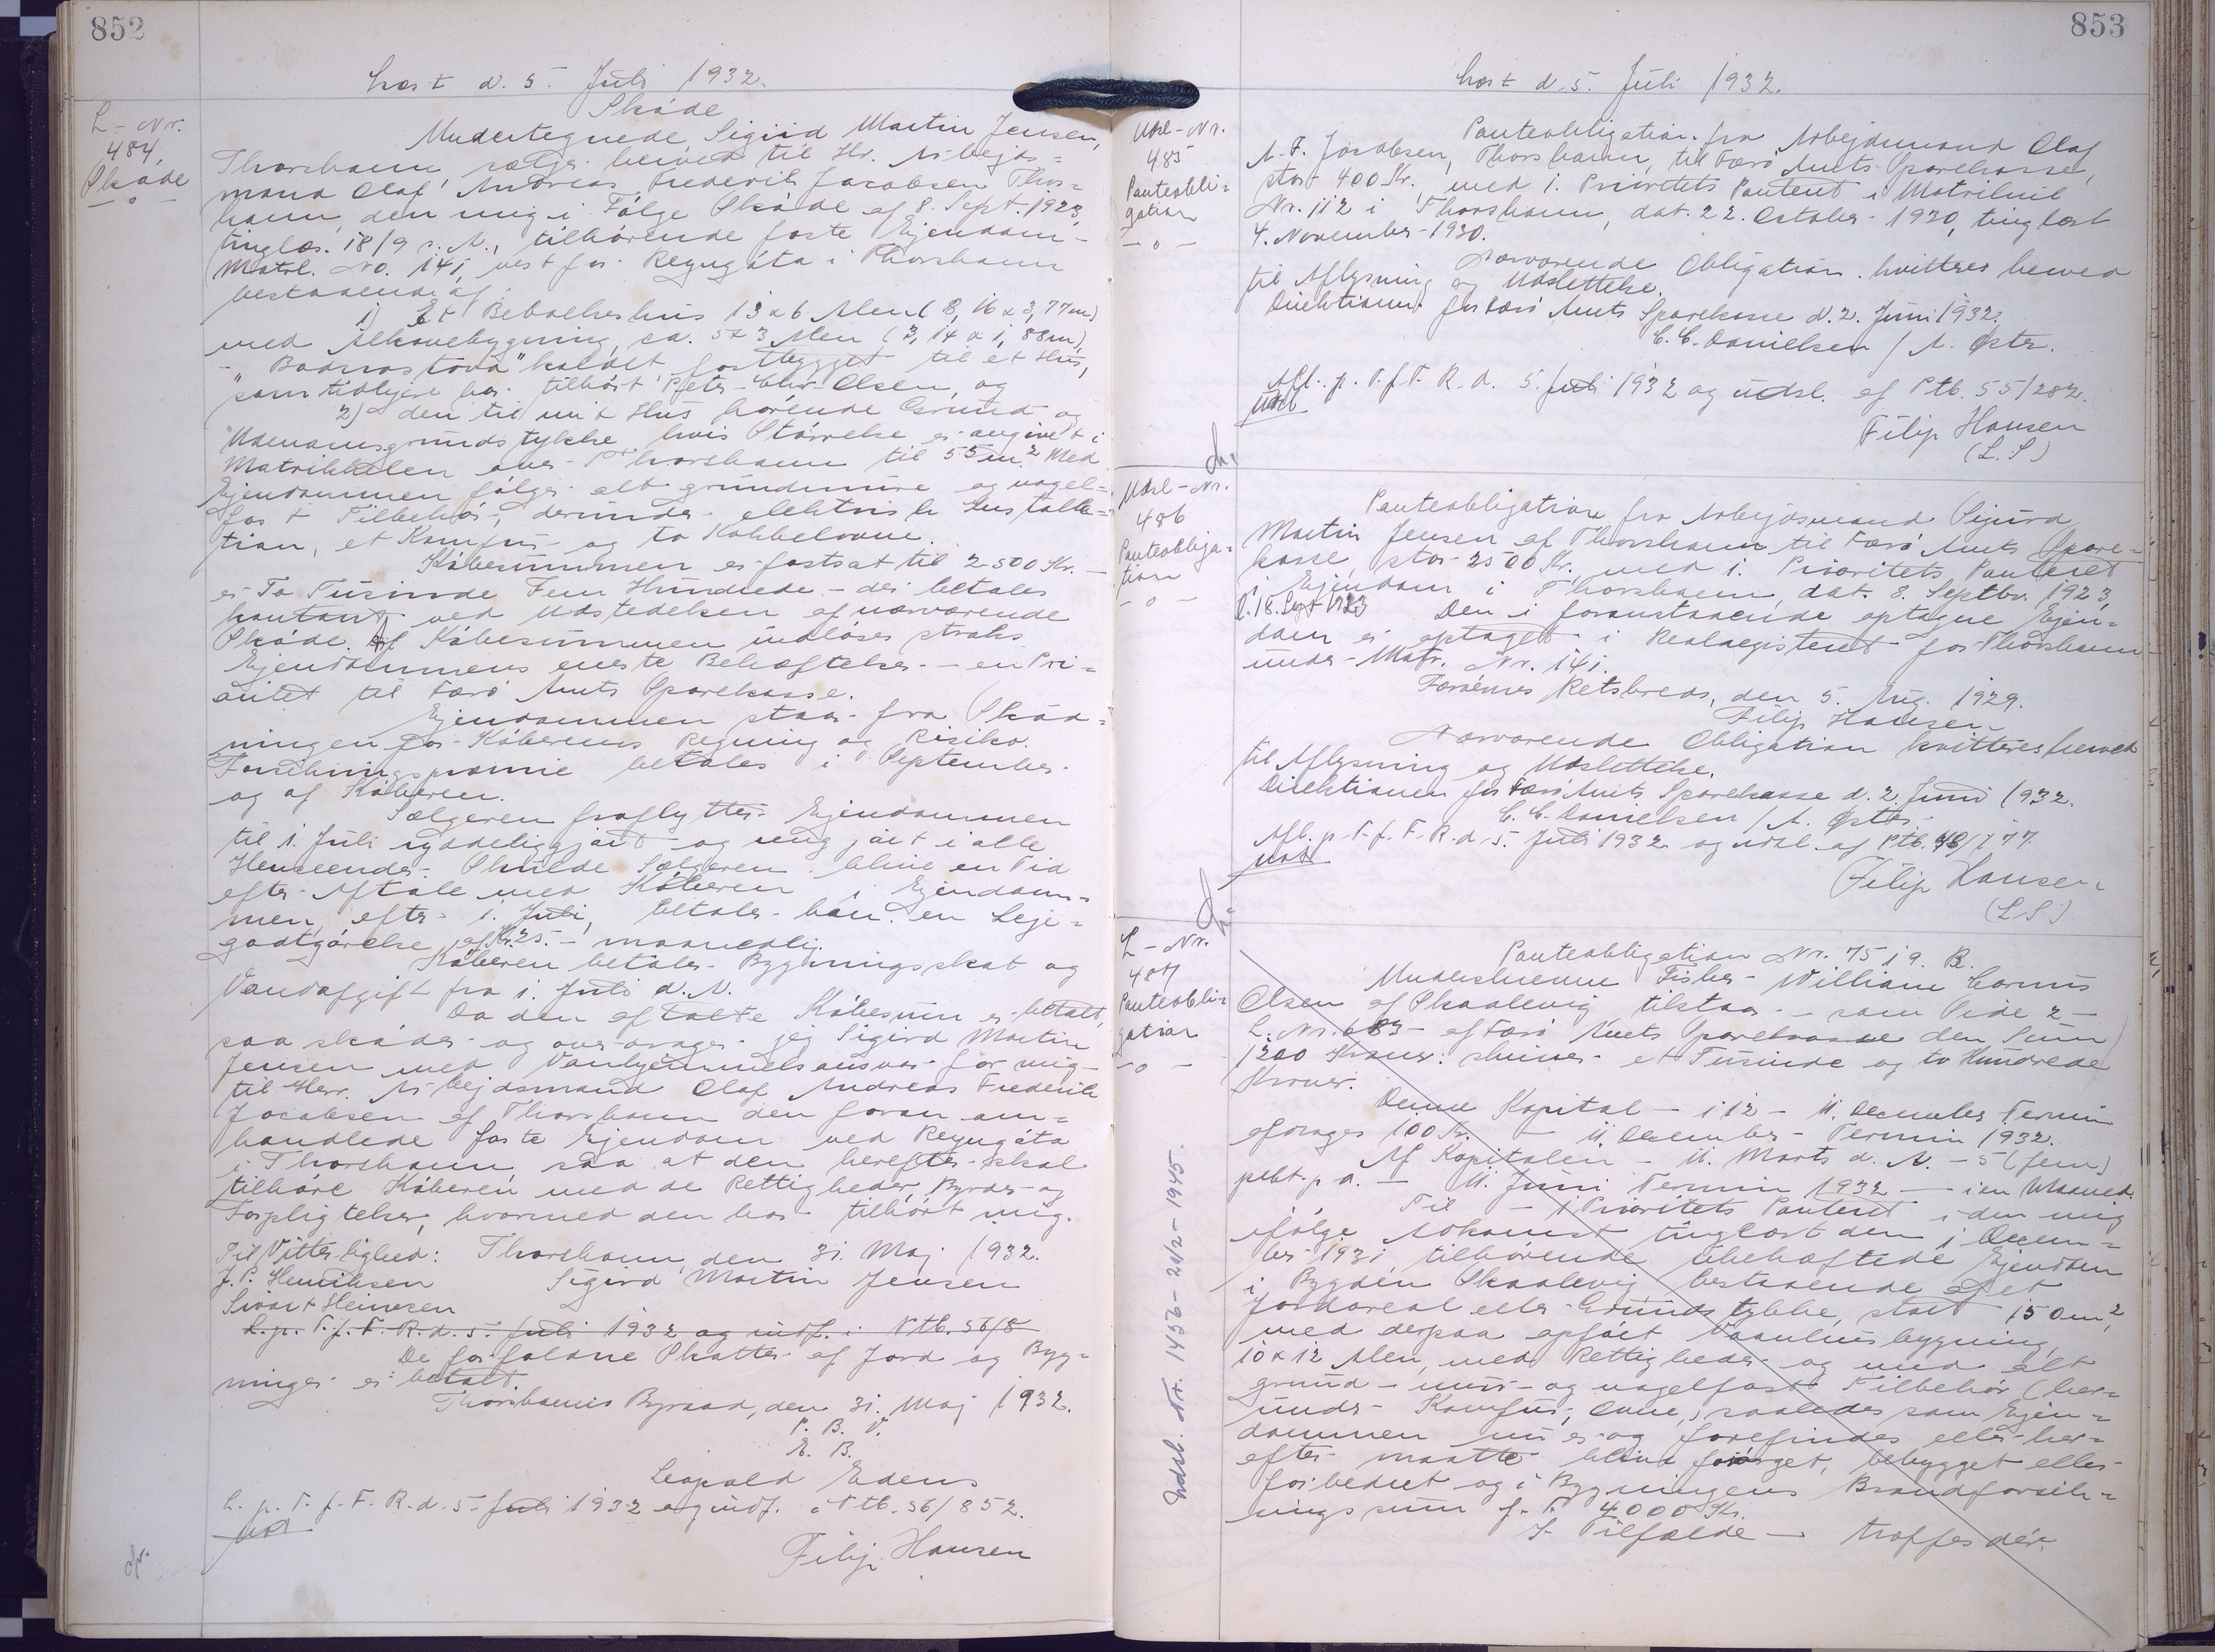 852
Læst d. 5. Juli 1932.
L-Nr.
484,
Skøde
Skøde
Undertegnede Sigurd Martin Jensen,
Thorshavn sælger herved til Hr. Arbejds=
mand Olaf Andreas Frederik Jacobsen Thors=
havn, den mig i Følge Skøde af 8. Sept. 1923,
tinglæs. 18/9 s. A., tilhørende faste Ejendom-
Matrl. No. 141, vest for Reyngøta i Thorshavn
bestaaende af
1) Et Beboelseshus 13 x 6 Alen (8,16 x 3,77m)
med Alkovebygning, ca. 5 x 3 Alen (3,14 x 1,88m),
- "Badnastova" kaldet, fastbygget til et Hus,
som tidligere har tilhørt Peter Chr. Olsen, og
2) den til mit Hus hørende Grund og
Udenomsgrundstykke, hvis Størrelse er angivet i
Matrikkelen over Thorshavn til 55 m². Med
Ejendommen følger alt grundmure og nagel=
fast Tilbehør, derunder elektrisk Installa=
tion, et Komfur og to Kakkelovne.
Købesummen er fastsat til 2500 Kr. -
er To Tusinde Fem Hundrede - der betales
kontant ved Udstedelsen af nærværende
Skøde. Af Købesummen indløses straks
Ejendommens eneste Behæftelse - en Pri=
oritet til Færø Amts Sparekasse.
Ejendommen staar fra Skød=
ningen for Køberens Regning og Risiko.
Forsikringspræmie betales i September
og af Køberen.
Sælgeren fraflytter Ejendommen
til 1. Juli ryddeliggjort og rengjort i alle
Henseender. Skulde Sælgeren blive en Tid
efter Aftale med Køberen i Ejendom=
men, efter 1. Juli, betaler han en Leje=
godtgørelse af Kr. 25.- maanedlig.
Køberen betaler Bygningsskat og
Vandafgift fra 1. Juli d. A.
Da den aftalte Købesum er betalt,
saa skøder og overdrager jeg Sigurd Martin
Jensen med Vanhjemmelsansvar for mig
til Herr. Arbejdsmand Olaf Andreas Frederik
Jacobsen af Thorshavn den foran om=
handlede faste Ejendom ved Reyngøta
i Thorshavn, saa at den herefter skal
tilhøre Køberen med de Rettigheder, Byrder og
Forpligtelser, hvormed den har tilhørt mig.
Til Vitterlighed: Thorshavn, den 31. Maj 1932.
J. P. Henriksen Sigurd Martin Jensen
Sivart Heinesen
L. p. T. f. F. R. d. 5. Juli 1932 og indf. i Ptb. 56/8
De forfaldne Skatter af Jord og Byg=
ninger er betalt.
Thorshavns Byraad, den 31. Maj 1932.
P. B. V.
E. B.
Leopold Edens
L. p. T. f. F. R. d. 5. Juli 1932 og indf. i Ptb. 56/852.
Filip Hansen
853
Læst d. 5. Juli 1932.
Udsl-Nr.
485
Panteobli=
gation
Panteobligation fra Arbejdsmand Olaf
A. F. Jacobsen, Thorshavn, til Færø Amts Sparekasse,
stor 400 Kr., med 1. Prioritets Panteret i Matrikul
Nr. 112 i Thorshavn, dat. 22. October 1930, tinglæst
4. November 1930.
Nærværende Obligation kvitteres herved
til Aflysning og Udslettelse.
Direktionen for Færø Amts Sparekasse d. 2. Juni 1932.
C. C. Danielsen / A. Øster.
Afl. p. T. f. F. R. d. 5. Juli 1932 og udsl. af Ptb. 55/282.
Filip Hansen
(L. S)
Udsl-Nr.
486
Panteobliga=
tion
Panteobligation fra Arbejdsmand Sigurd
Martin Jensen af Thorshavn til Færø Amts Spare=
kasse, stor 2500 Kr., med 1. Prioritets Panteret
i Ejendom i Thorshavn, dat. 8. Septbr. 1923,
l. 18. Sept 1923 Den i foranstaaende optagne Ejen=
dom er optaget i Realregisteret for Thorshavn
under Matr. Nr. 141.
Færøernes Retskreds, den 5. Aug. 1929.
Filip Hansen
Nærværende Obligation kvitteres herved
til Aflysning og Udslettelse.
Direktionen for Færø Amts Sparekasse d. 2. Juni 1932.
C. C. Danielsen / A. Øster.
Afl. p. T. f. F. R. d. 5. Juli 1932 og udsl. af Ptb. 48/177.
Filip Hansen
(L S)
L-Nr.
487
Panteobli=
gation
Panteobligation Nr. 7519. B.
Underskrevne Fisker William Cornus
Olsen af Skaalevig tilstaar - som Side 2 -
L. Nr. 683 - af Færø Amts Sparekasse den Sum
1200 Kroner: skriver et Tusinde og to Hundrede
Kroner.
Denne Kapital - i 12 - 11. December Termin
afdrages 100 Kr. - 11. December Termin 1932.
Af Kapitalen - 11. Marts d. A. - 5 (fem)
pebt. p. a. - 11. Juni Termin 1932 - i en Maaned.
Til - 1 Prioritets Panteret i den mig
ifølge Adkomst tinglæst den 1 Decem=
ber 1931 tilhørende ubehæftede Ejendom
i Bygden Skaalevig bestaaende af et
Jordareal eller Grundstykke, stort 150 m²,
med derpaa opført Vaaningsbygning
10 x 12 Alen, med Rettigheder og med alt
grund- mur- og nagelfast Tilbehør (her=
under Komfur, Ovne,) saaledes som Ejen=
dommen nu er og forefindes eller her=
efter maatte blive forøget, bebygget eller
forbedret og i Bygningens Brandforsik=
ringssum f. T. 4000 Kr.
I Tilfælde - træffes dér.
Udsl. Nr. 1456-20/12-1945.